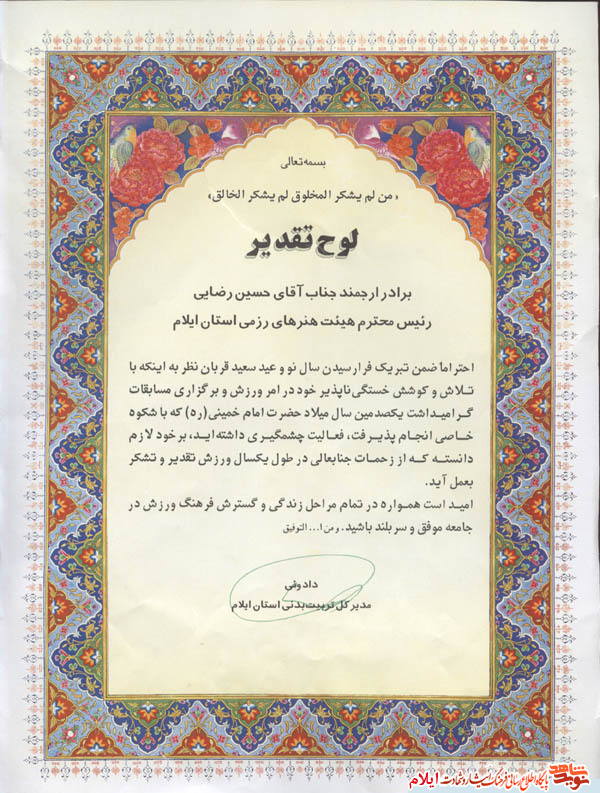 بسمه تعالی
«من لم یشکر المخلوق لم یشکر الخالق»
لوح تقدیر
برادر ارجمند جناب آقای حسین رضایی
رئیس محترم هیئت هنرهای رزمی استان ایلام
احتراما ضمن تبریک فرارسیدن سال نو و عید سعید قربان نظر به اینکه با
تلاش و کوشش خستگی ناپذیر خود در امر ورزش و برگزاری مسابقات
گرامیداشت یکصدمین سال میلاد حضرت امام خمینی (ره) که با شکوه
خاصی انجام پذیرفت، فعالیت چشمگیری داشته‌اید، برخود لازم
دانسته که از زحمات جنابعالی در طول یکسال ورزش تقدیر و تشکر
بعمل آید.
امید است همواره در تمام مراحل زندگی و گسترش فرهنگ ورزش در
جامعه موفق و سربلند باشید. و من ا... التوفیق
دادوئی
مدیر کل تربیت بدنی استان ایلام
نوید شاهد پایگاه اطلاع رسانی فرهنگ ایثار و شهادت ایلام